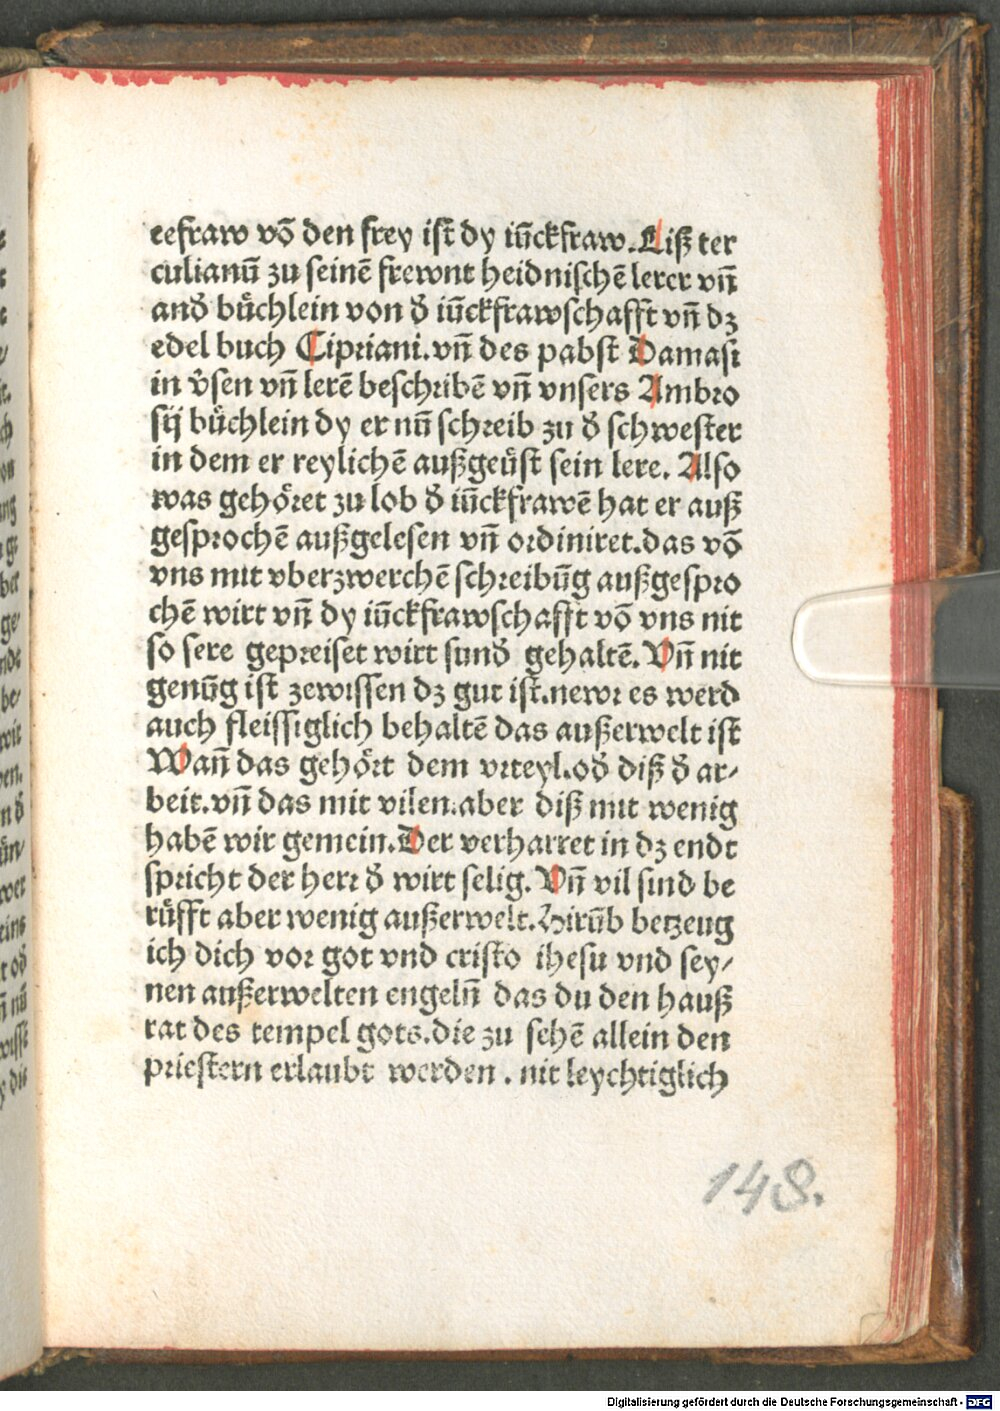 eefraw vō den frey ist dy iūckfraw. Liß ter
culianū zu seinē frewnt heidnischē lerer vn̄
and̾ bu̇chlein von d̾ iūckfrawschafft vn̄ dz
edel buch Cipriani. vn̄ des pabst Damasi
in v̾sen vn̄ lerē beschribē vn̄ vnsers Ambro
sij bu̇chlein dy er nū schreib zu d̾ schwester
in dem er reylichē außgeu̇st sein lere. Also
was gehȯret zu lob d̾ iūckfrawē hat er auß
gesprochē außgelesen vn̄ ordiniret. das vō
vns mit vberzwerchē schreibūg außgespro
chē wirt vn̄ dy iūckfrawschafft vō vns nit
so sere gepreiset wirt sund̾ gehaltē. Vn̄ nit
genūg ist zewissen dz gut ist. newr es werd
auch fleissiglich behaltē das außerwelt ist
Wan̄ das gehȯrt dem vrteyl. od̾ diß d̾ ar-
beit. vn̄ das mit vilen. aber diß mit wenig
habē wir gemein. Der verharret in dz endt
spricht der herr d̾ wirt selig. Vn̄ vil sind be
ru̇fft aber wenig außerwelt. Hirūb betzeug
ich dich vor got vnd cristo ihesu vnd sey-
nen außerwelten engeln̄ das du den hauß
rat des tempel gots. die zu sehē allein den
priestern erlaubt werden. nit leychtiglich
148.
Digitalisierung gefördert durch die Deutsche Forschungsgemeinschaft - DFG